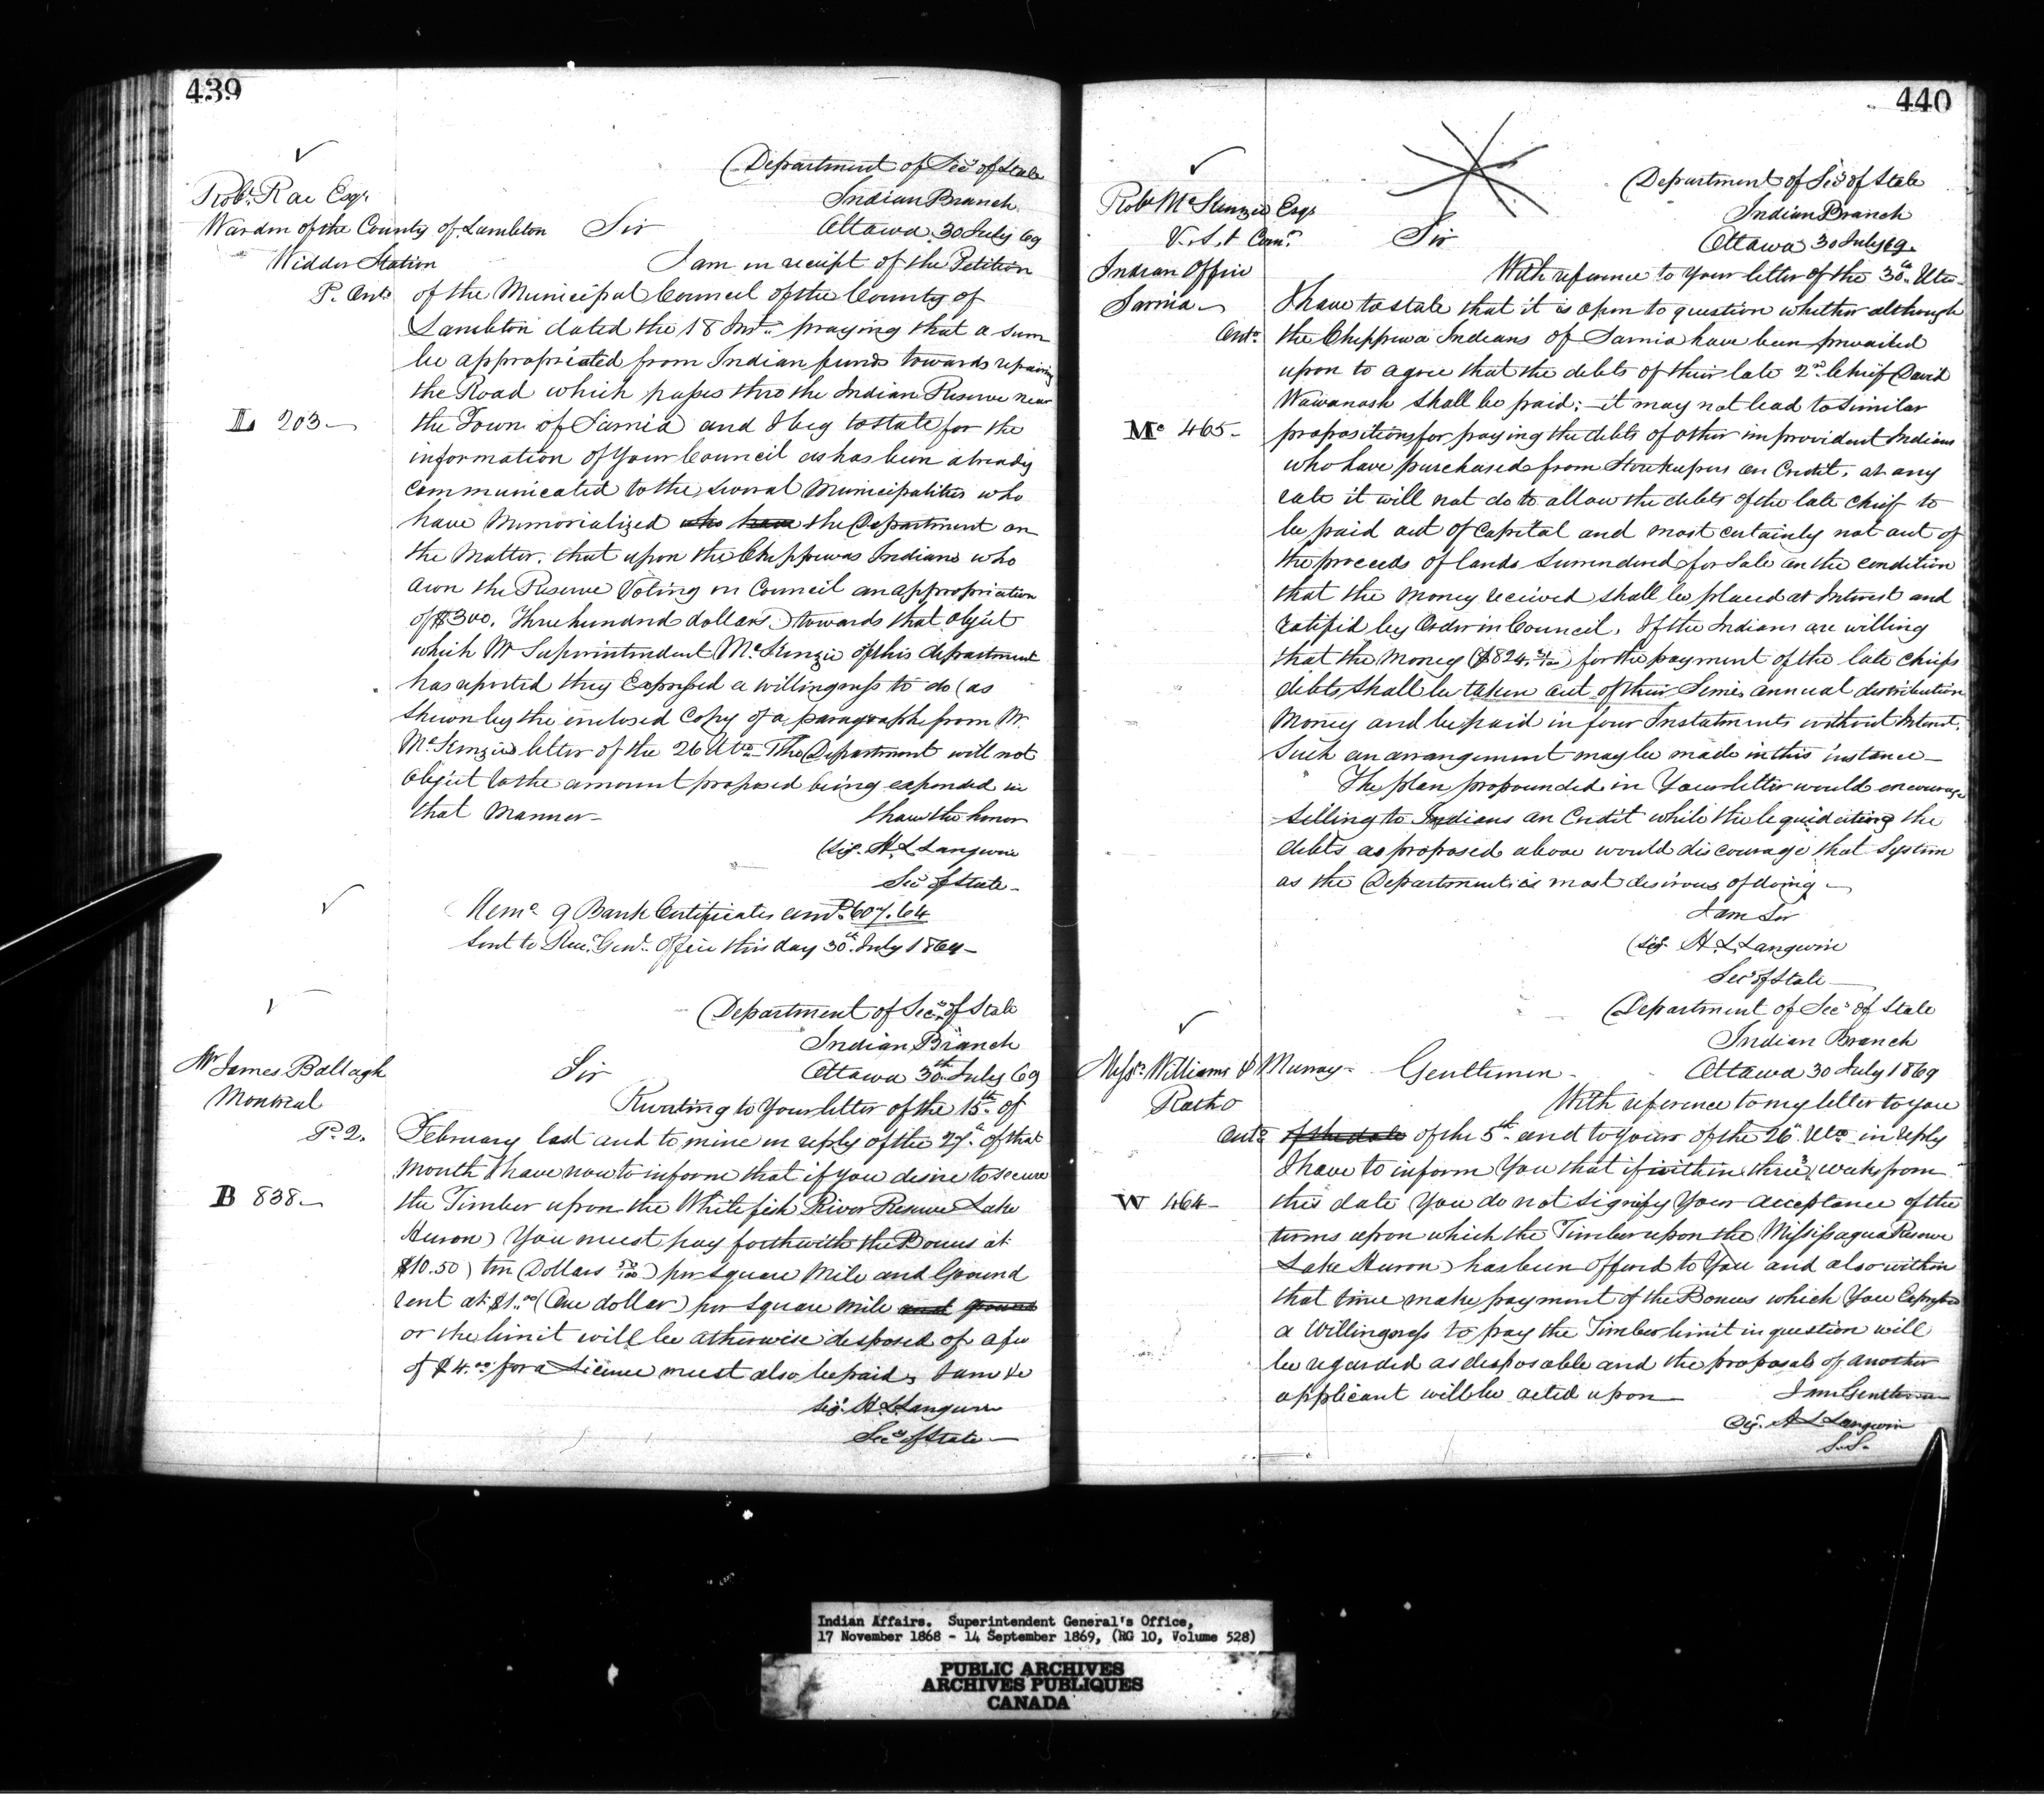 439
Robt. Rae Esqr.
Warden of the County of Lambton
Widder Station
P. Ont.
L 203
Department of Secy of State
Indian Branch
Ottawa 30 July 69
Sir
I am in receipt of the Petition
of the Municipal Council of the County of
Lambton dated the 18 Inst. praying that a sum
be appropriated from Indian funds towards repairing
the Road which passes thro the Indian Reserve near
the Town of Sarnia and I beg to state for the
information of Your Council as has been already
communicated to the several Municipalities who
have Memorialized who have the Department on
the Matter, that upon the Chippewas Indians who
own the Reserve Voting in Council an appropriation
of $300. Three hundred dollars) towards that object
which Mr Superintendent McKenzie of this department
has reported they Expressed a willingness to do (as
shewn by the enclosed Copy of a paragraph from Mr.
McKenzies letter of the 26 Ulto. The Department will not
object to the amount proposed being expended in
that manner-
I have the honor
(sig. H. L. Langevin
Secy of State-
Memo 9 Bank Certificates amt. $607.64
Sent to Recr. Genl. Office this day 30th July 1869-
Mr James Ballagh
Montreal
P. 2.
B 838-
Department of Secy of State
Indian Branch
Ottawa 30th July 69
Sir
Reverting to Your letter of the 15th of
February last and to mine in reply of the 27th of that
Month I have now to inform that if you desire to secure
the Timber upon the White fish River Reserve Lake
Huron) You must pay forthwith the Bonus at
$10.50) ten Dollars 50/100) per square Mile and Ground
rent at $1.00 (One dollar) per square mile and ground
or the limit will be otherwise disposed of a fee
of $4.00 for a License must also be paid, I am &c
sig. H. L. Langevin
Secy of State-
440
Robt McKenzie Esqr
V. S. & Comr.
Indian Office
Sarnia-
Ont.
Mc 465-
Department of Secy of State
Indian Branch
Ottawa 30 July 69.
Sir
With reference to Your letter of the 30th Ulto-
I have to state that it is open to question whether although
the Chippewa Indians of Sarnia have been prevailed
upon to agree that the debts of their late 2nd Chief David
Wawanosh shall be paid; - it may not lead to similar
propositions for paying the debts of other improvident Indians
who have purchased from Storekeepers on Credit, at any
rate it will not do to allow the debts of the late Chief to
be paid out of Capital and most certainly not out of
the proceeds of lands surrendered for Sale on the condition
that the money received shall be placed at Interest and
ratified by Order in Council. If the Indians are willing
that the Money ($824. ) for the payment of the late Chiefs
debts shall be taken out of their Semi annual distribution
Money and be paid in four Instalments without Interest.
Such an arrangement may be made in this instance-
The plan propounded in Your letter would encourage
selling to Indians on Credit while the liquidating the
debts as proposed above would discourage that System
as the Department is most desirous of doing-
I am Sir
(sig. H. L. Langevin
Secy of State-
Messrs. Williams & Murray-
Ratho
Onto
W 464-
Department of Secy of State
Indian Branch
Ottawa 30 July 1869
Gentlemen-
With reference to my letter to you
of the date of the 5th and to yours of the 26th Ulto in reply
I have to inform You that if within three weeks from
this date You do not signify Your acceptance of the
terms upon which the Timber upon the Mississagua Reserve
Lake Huron) has been offered to You and also within
that time make payment of the Bonus which You Expressed
a Willingness to pay the Timber limit in question will
be regarded as disposable and the proposals of another
applicant will be acted upon-
I am Gentlemen
Sig. H. L. Langevin
S. S.
Indian Affairs. Superintendent General's Office,
17 November 1868 - 14 September 1869, (RG 10, Volume 528)
PUBLIC ARCHIVES
ARCHIVES PUBLIQUES
CANADA